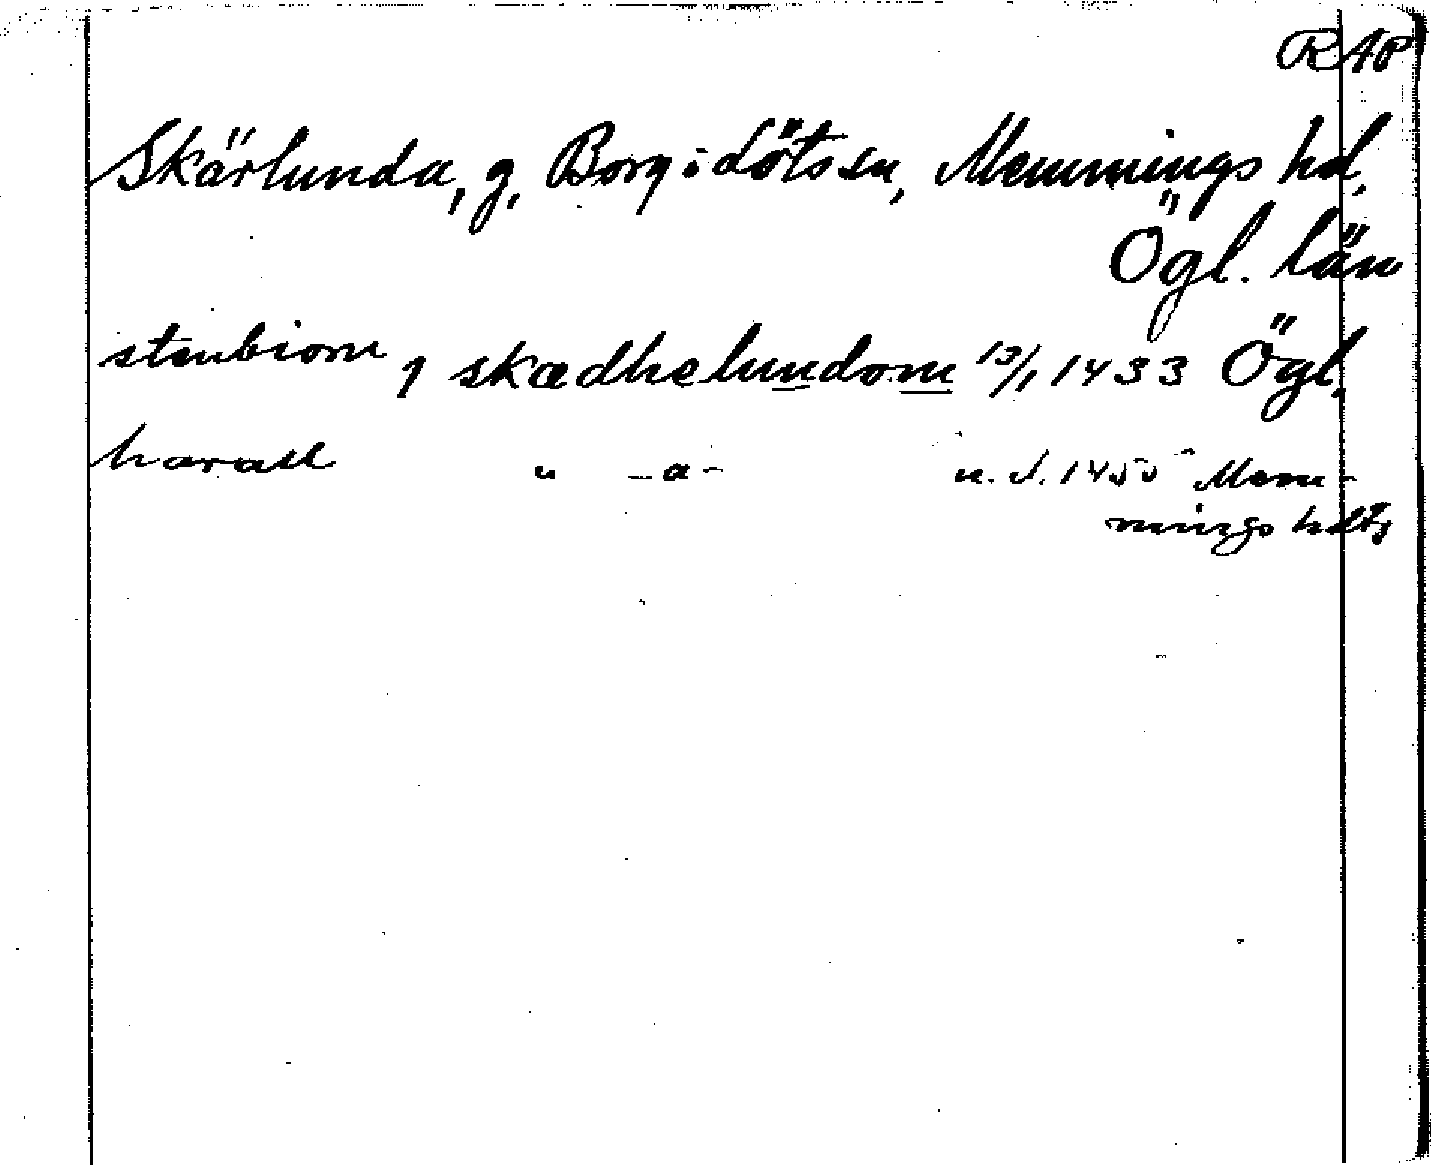 RAP
Skärlunda, g, Borg i Löts sn, Memmings hd,
Ögl. län
stenbiorn j skædhelundom 13/1 1433 Ögl.
haradl " -a- u. d. 1450 Mem-
mings hdts